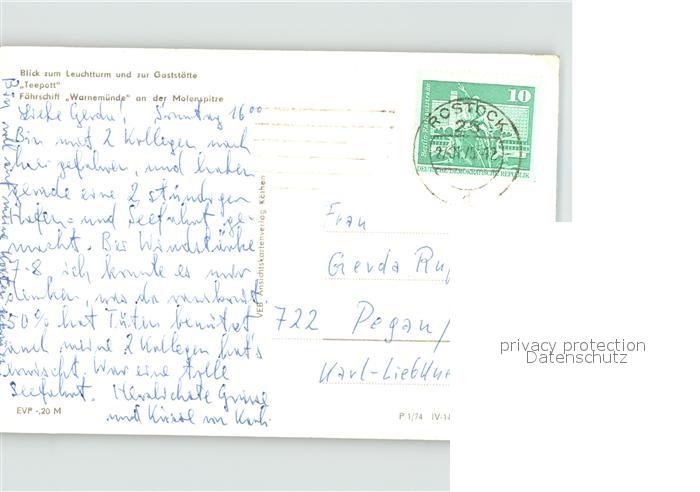 Blick zum Leuchtturm und zur Gaststätte
„Teepott“
Fährschiff „Warnemünde“ an der Molenspitze
Liebe Gerda! Sonntag 16⁰⁰
Bin mit 2 Kollegen nach
hier gefahren, und haben
gerade eine 2 stündigen
Hafen- und Seefahrt ge-
macht. Bei Windstärke
7-8, ich konnte es mir
denken, was da
50% hat Tüten benutzt
auch meine 2 Kollegen hat's
erwischt. War eine tolle
Seefahrt. Herzlichste Grüsse
und Küsse von
EVP -,20 M
VEB Ansichtskartenverlag Köthen
10
Berlin
DEUTSCHE DEMOKRATISCHE REPUBLIK
ROSTOCK
Frau
Gerda
722 Pegau/
Karl-Liebkne
P 1/74 IV-14
privacy protection
Datenschutz